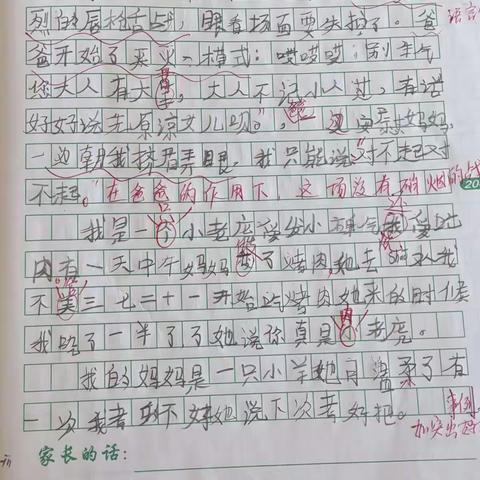 烈的唇枪舌战，眼看场面要失控了。爸
爸开始了灭火模式：哎哎哎，别生气
您大人有大量，大人不记小人过，有话
好好说，原谅女儿吧。”，边安慰妈妈，
一边朝我挤眉弄眼。我只能说“对不起对
不起。在爸爸的作用下，这场没有硝烟的战
我是一个小老虎爱发小脾气还爱吃
肉有一天中午妈妈买了烤肉她去
不三七二十一开始吃烤肉她来的时候
我吃了一半了她说你真是个老虎。
我的妈妈是一只小羊她月温柔了有
一次我考砸了她说下次考好吧。
事例
加突出
语言
20
家长的话：